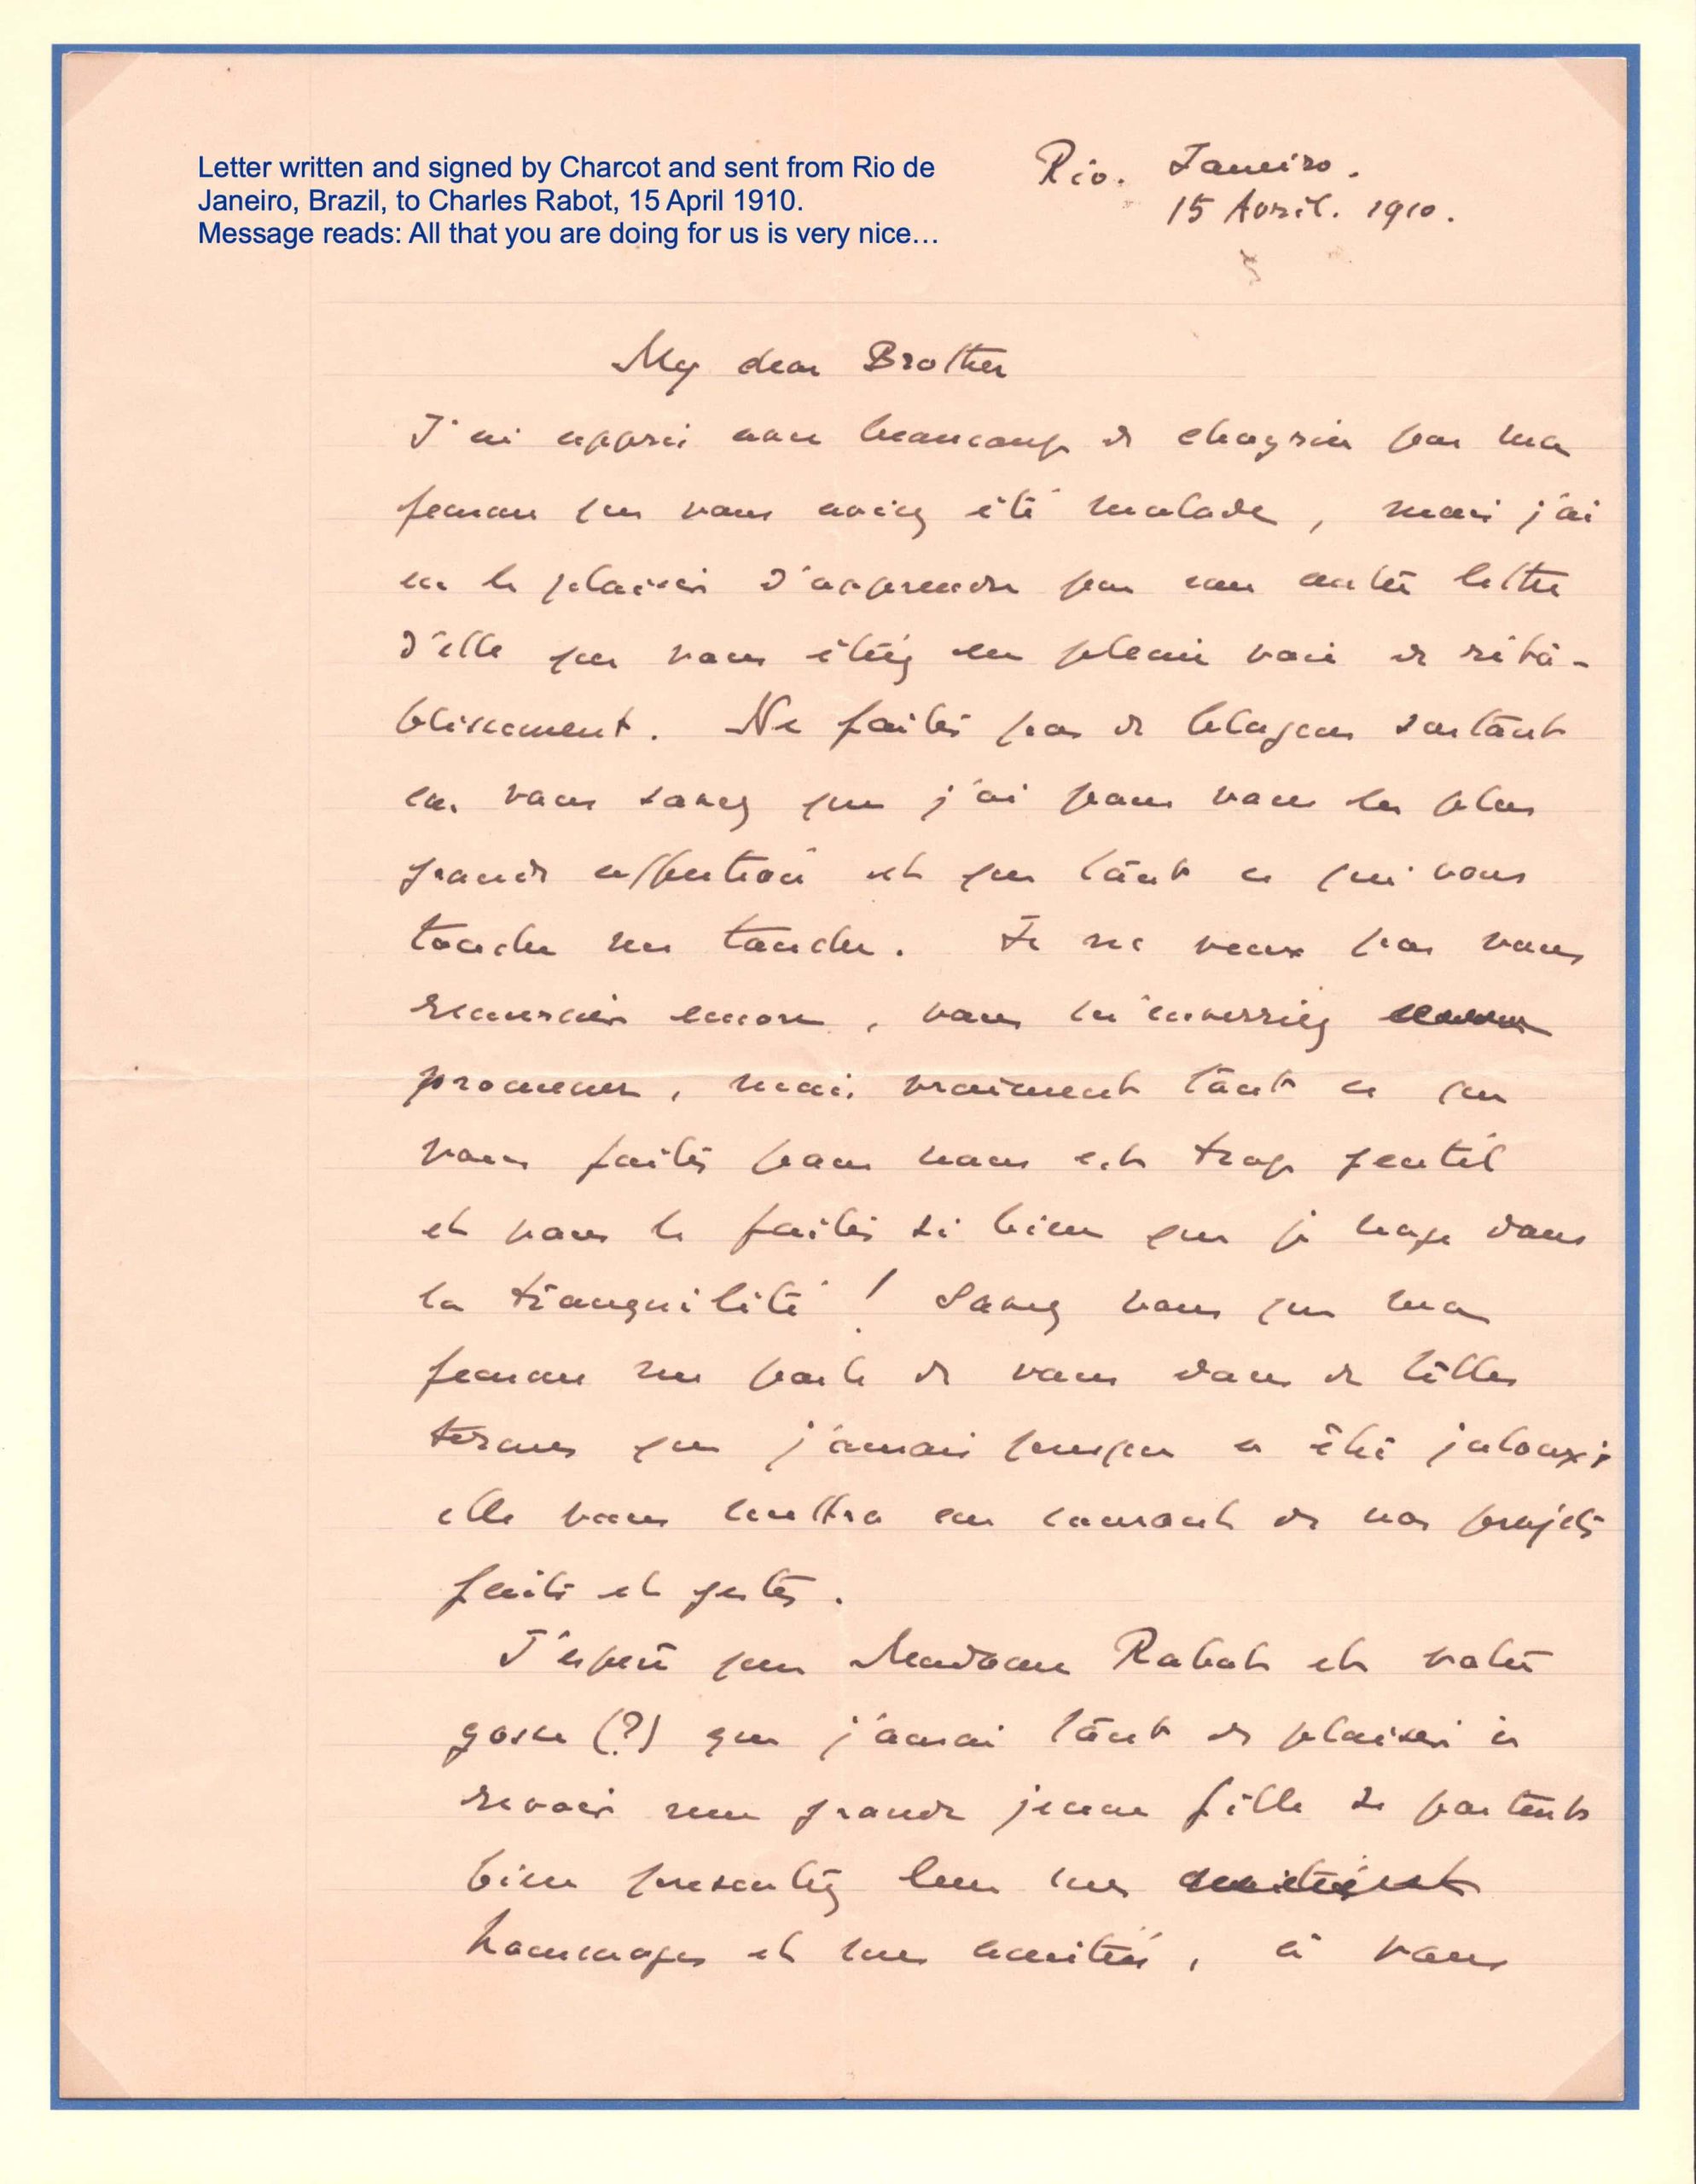 Letter written and signed by Charcot and sent from Rio de
Janeiro, Brazil, to Charles Rabot, 15 April 1910.
Message reads: All that you are doing for us is very nice…
Rio. Janeiro.
15 Avril. 1910.
My dear Brother
J'ai appris avec beaucoup de chagrin par ma
femme que vous aviez été malade, mais j'ai
eu le plaisir d'apprendre par une autre lettre
d'elle que vous étiez en pleine voie de réta-
blissement. Ne faites pas de blagues surtout
car vous savez que j'ai pour vous la plus
grande affection et que tout ce qui vous
touche me touche. Je ne veux pas vous
remercier encore, vous m'enverriez
promener, mais vraiment tout ce que
vous faites pour nous est trop gentil
et vous le faites si bien que je nage dans
la tranquilité! Savez vous que ma
femme me parle de vous dans de telles
termes que j'amais presque été jaloux;
elle vous mettra au courant de nos projets
faits et gestes.
J'espère que Madame Rabot et votre
gosse (?) que j'aurai tant de plaisir à
revoir une grande jeune fille se portent
bien presentez leur mes
hommages et mes amitiés, à vous